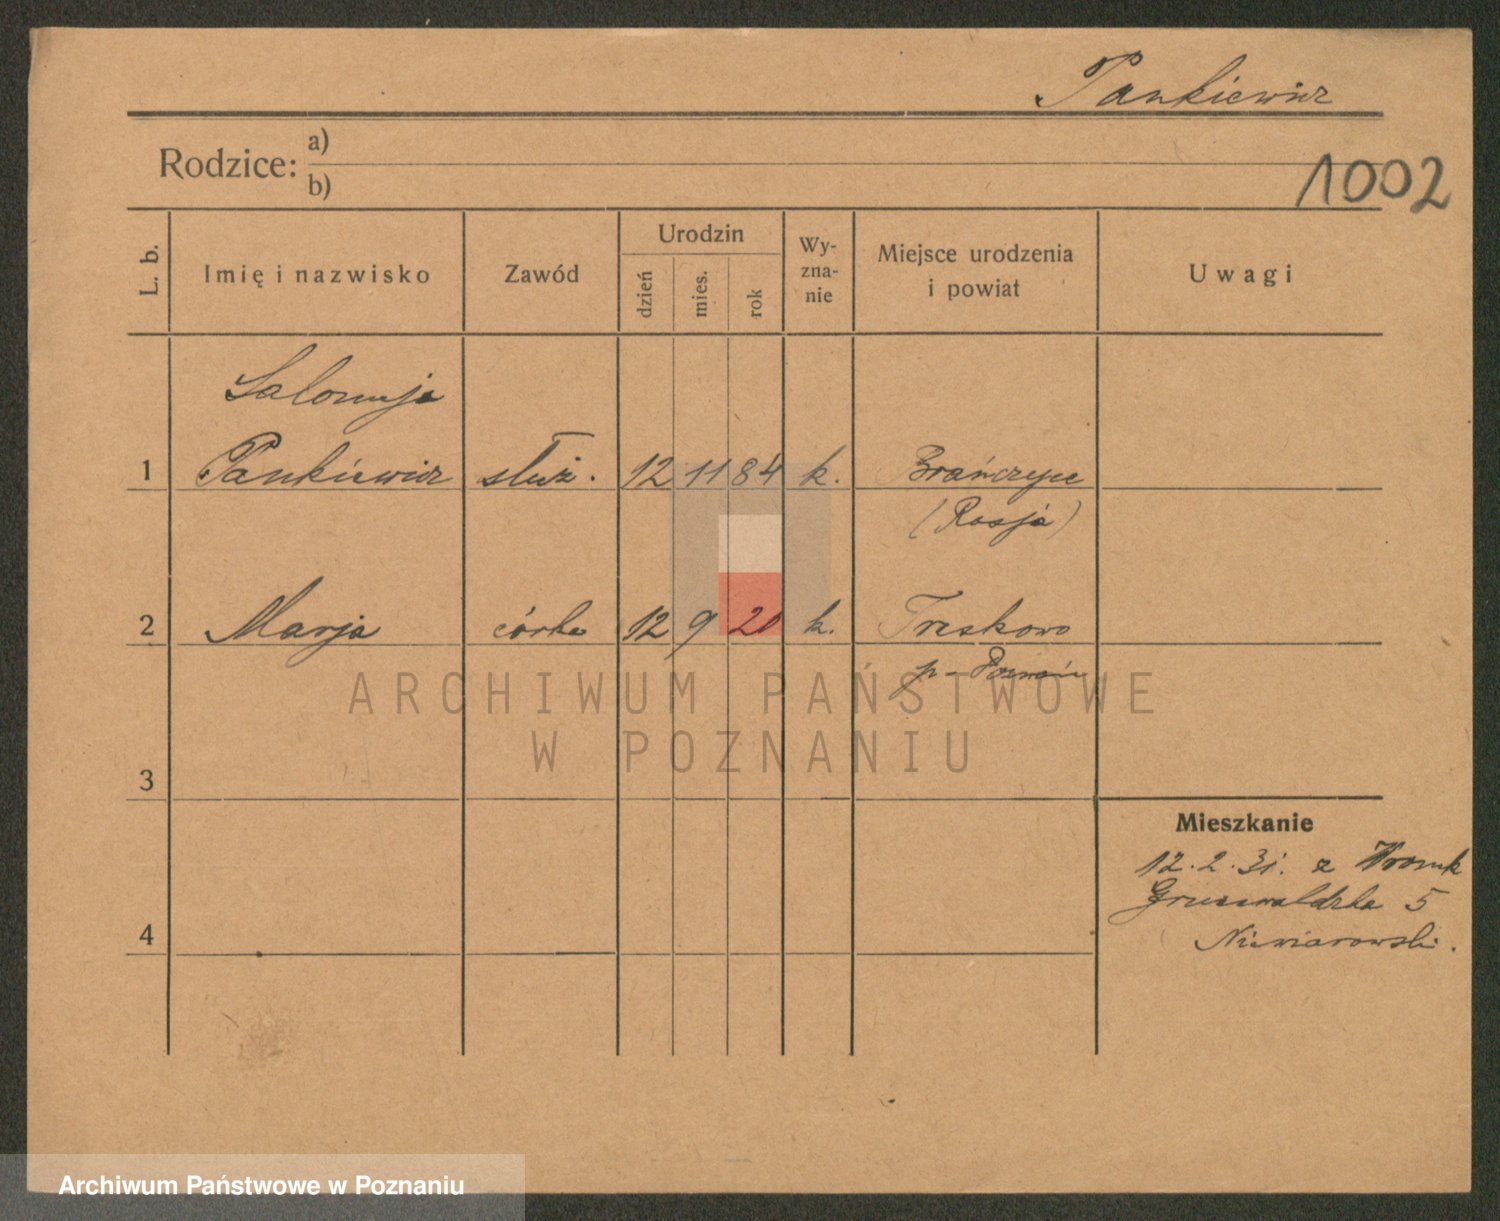 Pankiewicz
Rodzice: a)
b)
1002
L. b.
Imię i nazwisko
Zawód
Urodzin
dzień
mies.
rok
Wy-
zna-
nie
Miejsce urodzenia
i powiat
Uwagi
Salomeja
1 Pankiewicz służ. 12 11 84 k.
(Rosja)
2 Marja córka 12 9 20 k. Treskowo
p-Poznań
ARCHIWUM PAŃSTWOWE
W POZNANIU
3
Mieszkanie
12.2.31. z Wronk
Grunwaldzka 5
4
Niewiarowski.
Archiwum Państwowe w Poznaniu